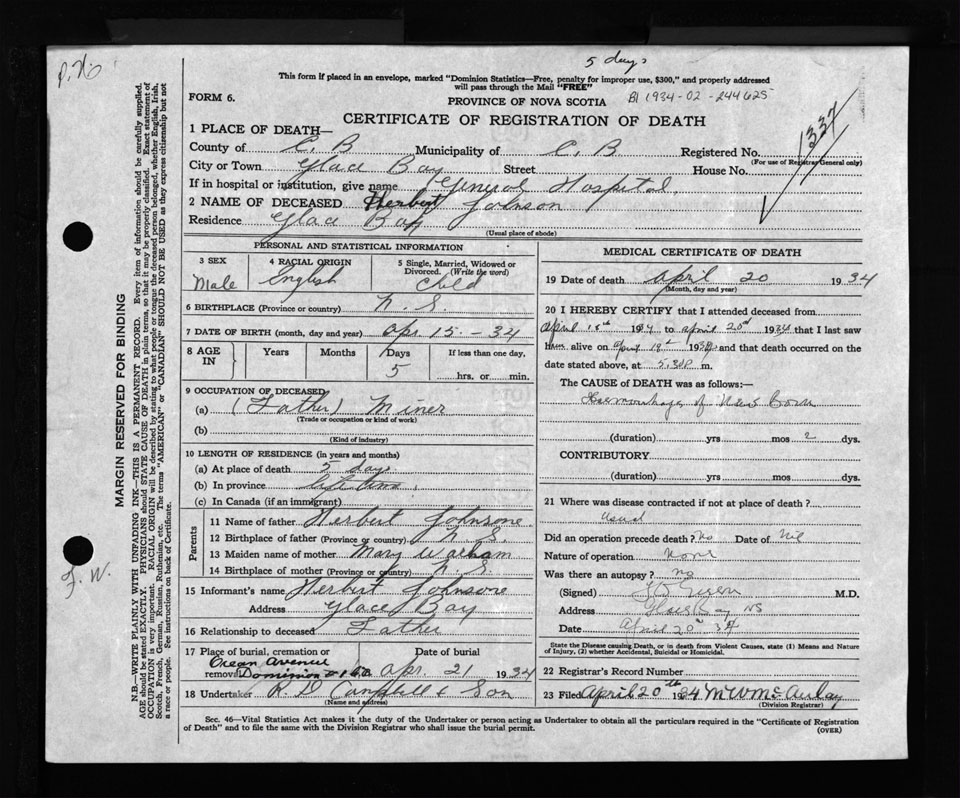 5 days
P.
This form if placed in an envelope, marked "Dominion Statistics—Free, penalty for improper use, $300," and properly addressed
will pass through the Mail "FREE"
FORM 6.
PROVINCE OF NOVA SCOTIA
B1 1934-02-244625
CERTIFICATE OF REGISTRATION OF DEATH
1337
1 PLACE OF DEATH—
County of C. B Municipality of C. B. Registered No.
(For use of Registrar General only)
City or Town Glace Bay Street House No.
If in hospital or institution, give name General Hospital.
2 NAME OF DECEASED Herbert Johnson
Residence Glace Bay
(Usual place of abode)
PERSONAL AND STATISTICAL INFORMATION
3 SEX
Male
4 RACIAL ORIGIN
English
5 Single, Married, Widowed or
Divorced. (Write the word)
Child
6 BIRTHPLACE (Province or country) N S.
7 DATE OF BIRTH (month, day and year) Apr. 15 - 34
8 AGE IN
Years
Months
Days
5
If less than one day,
hrs. or min.
9 OCCUPATION OF DECEASED
(a) (Father) Miner
(Trade or occupation or kind of work)
(b)
(Kind of industry)
10 LENGTH OF RESIDENCE (in years and months)
(a) At place of death 5 days.
(b) In province
(c) In Canada (if an immigrant)
Parents
11 Name of father Herbert Johnsone
12 Birthplace of father (Province or country) N. S.
13 Maiden name of mother Mary Warham
14 Birthplace of mother (Province or country) N. S.
15 Informant's name Herbert Johnsone
Address Glace Bay
16 Relationship to deceased Father
17 Place of burial, cremation or
removal Ocean Avenue
Dominion
Date of burial
Apr. 21 1934
18 Undertaker R D Campbell & Son
(Name and address)
MEDICAL CERTIFICATE OF DEATH
19 Date of death April 20 1934
(Month, day and year)
20 I HEREBY CERTIFY that I attended deceased from
April 18th 1934 to April 20th 1934 that I last saw
him alive on April 19th 1934 and that death occurred on the
date stated above, at 5.30P m.
The CAUSE of DEATH was as follows:—
Haemorrhage of New Born
(duration) yrs mos 2 dys.
CONTRIBUTORY
(duration) yrs mos dys.
21 Where was disease contracted if not at place of death?
Usual
Did an operation precede death? No Date of Nil
Nature of operation None
Was there an autopsy? No
(Signed) M.D.
Address Glace Bay NS
Date April 20th 34
State the Disease causing Death, or in death from Violent Causes, state (1) Means and
Nature of Injury, (2) whether Accidental, Suicidal or Homicidal.
22 Registrar's Record Number
23 Filed April 20th 1934 M W McAulay
(Division Registrar)
Sec. 46—Vital Statistics Act makes it the duty of the Undertaker or person acting as Undertaker to obtain all the particulars required in the "Certificate of Registration
of Death" and to file the same with the Division Registrar who shall issue the burial permit.
(OVER)
MARGIN RESERVED FOR BINDING
N.B.—WRITE PLAINLY WITH UNFADING INK—THIS IS A PERMANENT RECORD. Every item of information should be carefully supplied.
AGE should be stated EXACTLY. PHYSICIANS should STATE CAUSE OF DEATH in plain terms so that it may be properly classified. Exact statement of
OCCUPATION is very important. RACIAL ORIGIN will be described by stating to what people or tongue the deceased person belonged, whether English, Irish,
Scotch, French, German, Russian, Ruthenian, etc. The terms "AMERICAN" or "CANADIAN" SHOULD NOT BE USED as they express citizenship but not
a race or people. See instructions on back of Certificate.
F. W.